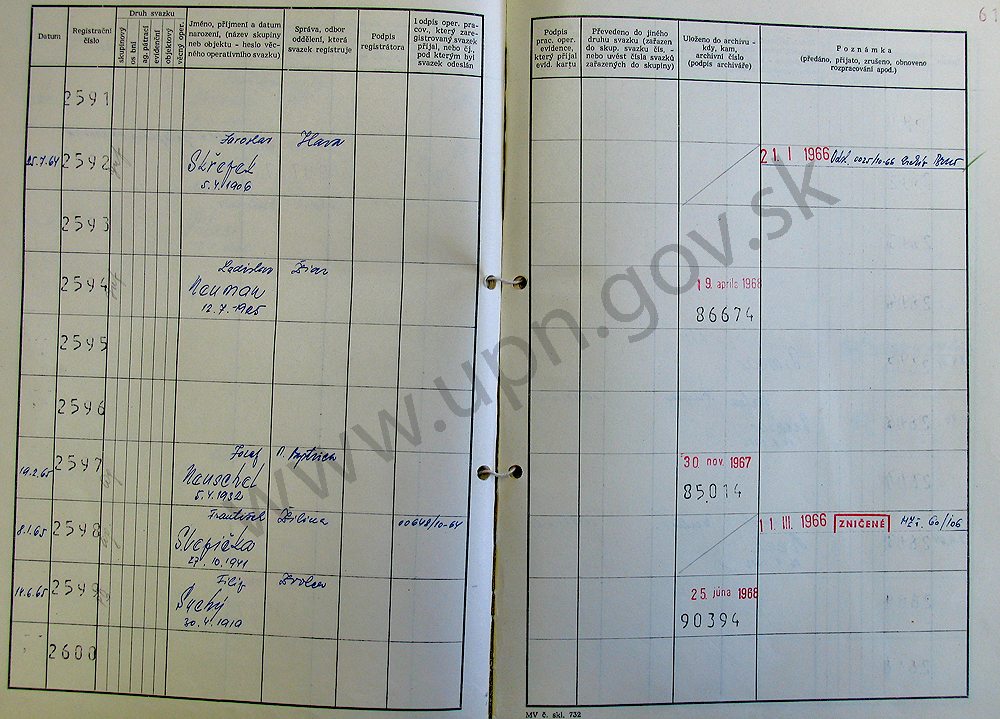 61
Datum
Registrační číslo
Druh svazku
skupinový
osobní
ag. pátrací
evidenční
objektový
věcný oper.
Jméno, příjmení a datum
narození, (název skupiny
neb objektu - heslo věc-
ného operativního svazku)
Správa, odbor
oddělení, která
svazek registruje
Podpis
registrátora
Podpis oper. pra-
cov., který zare-
gistrovaný svazek
přijal, nebo čj.
pod kterým byl
svazek odeslán
Podpis
prac. oper.
evidence,
který přijal
evid. kartu
Převedeno do jiného
druhu svazku (zařazen
do skup. svazku čís. -
nebo uvést čísla svazků
zařazených do skupiny)
Uloženo do archivu -
kdy, kam,
archivní číslo
(podpis archiváře)
Poznámka
(předáno, přijato, zrušeno, obnoveno
rozpracování apod.)
2591
25.7.64 2592 Jaroslav
21. I 1966
5.4.1906
2593
2594 Ladislav Žiar
Nauman
12.7.-1925
19. apríla 1968
86674
2595
2596
19.2.65 2597 Jozef B. Bystrica
5.4.1932
30 nov. 1967
85014
8.1.65 2598 František Žilina 00648/10-64
11. III. 1966 ZNIČENÉ
27.10.1941
14.6.65 2599 Filip Zvolen
Suchý
30.4.1919
25. júna 1968
90394
2600
MV č. skl. 732
www.upn.gov.sk